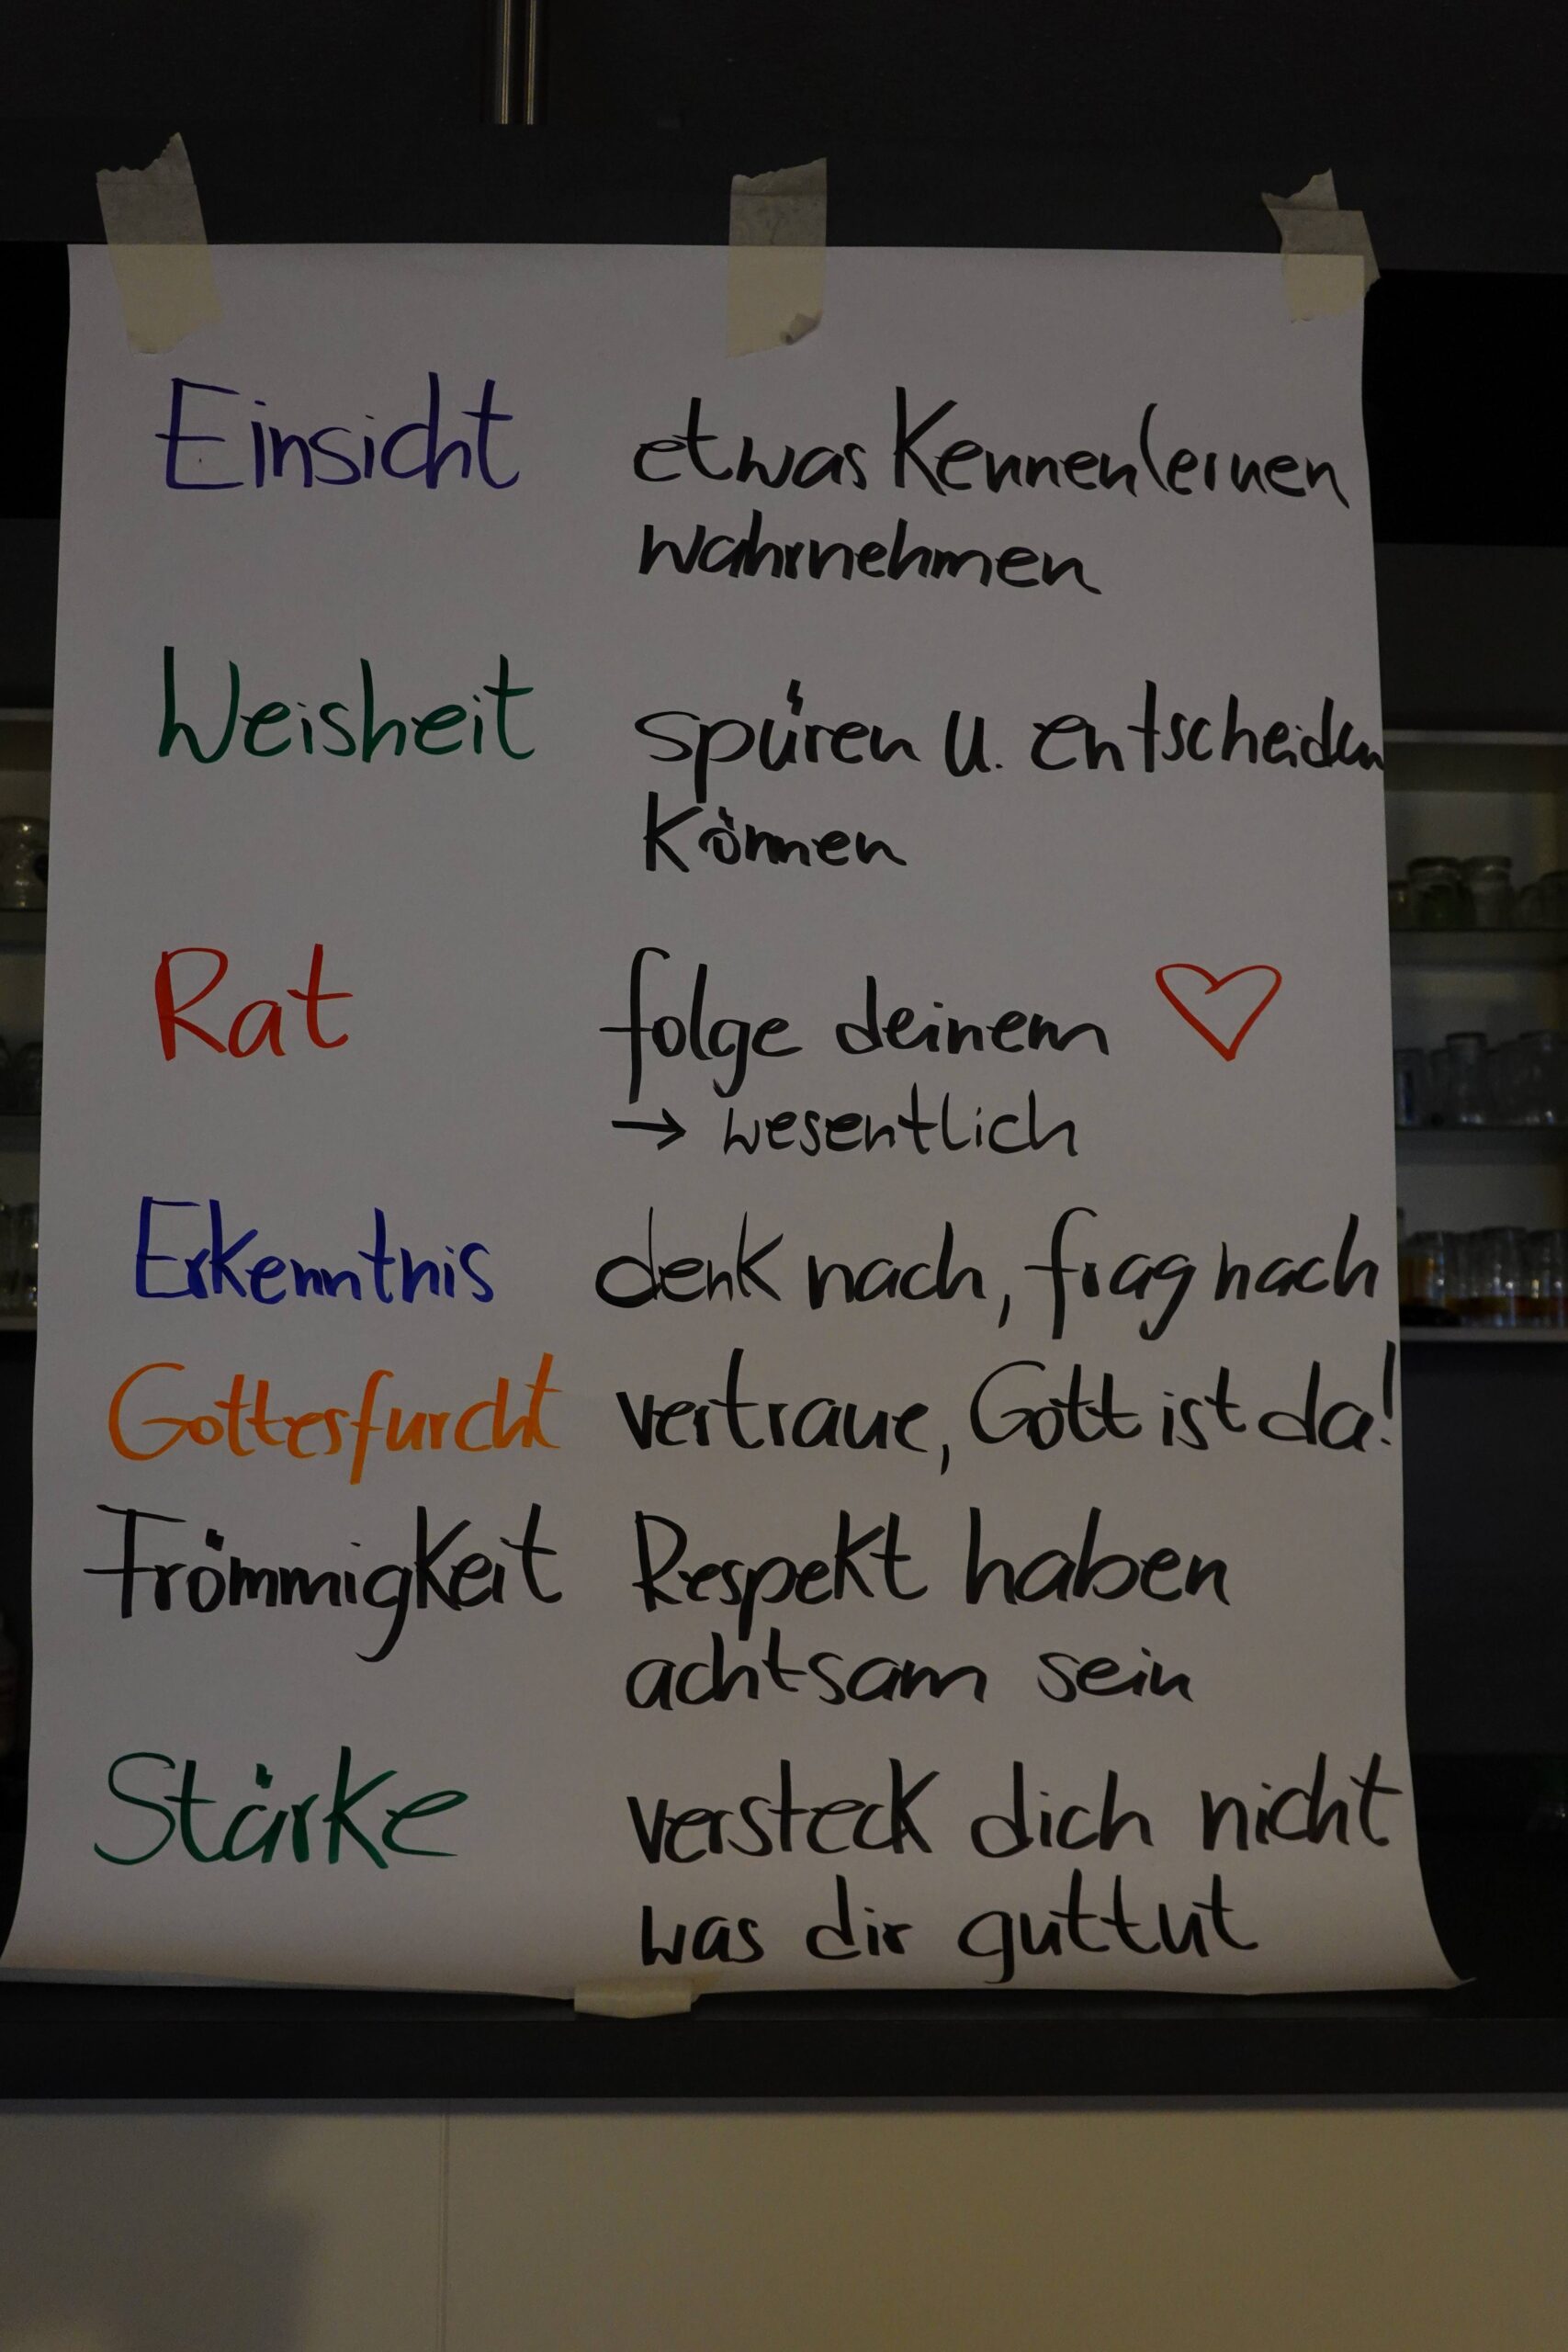 Einsicht etwas Kennenlernen
wahrnehmen
Weisheit spüren u. entscheiden
können
Rat folge deinem ♡
→ wesentlich
Erkenntnis denk nach, frag nach
Gottesfurcht vertraue, Gott ist da!
Frömmigkeit Respekt haben
achtsam sein
Stärke versteck dich nicht
was dir guttut